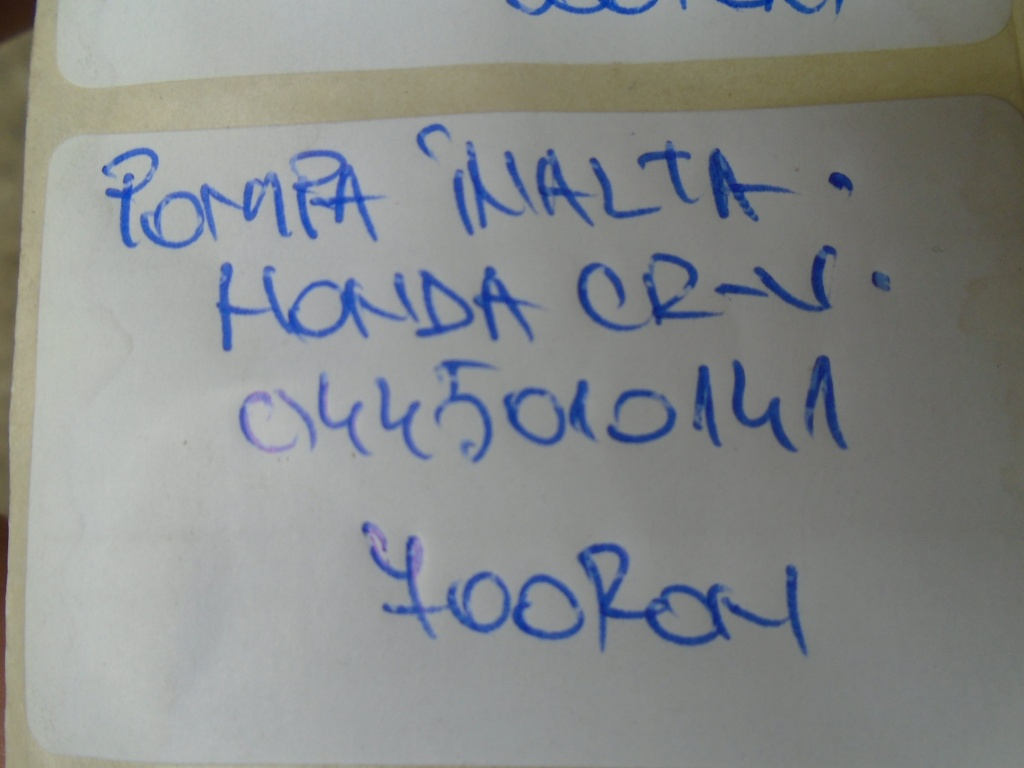 POMPA ÎNALTA.
HONDA CR-V.
0445010141
700RON